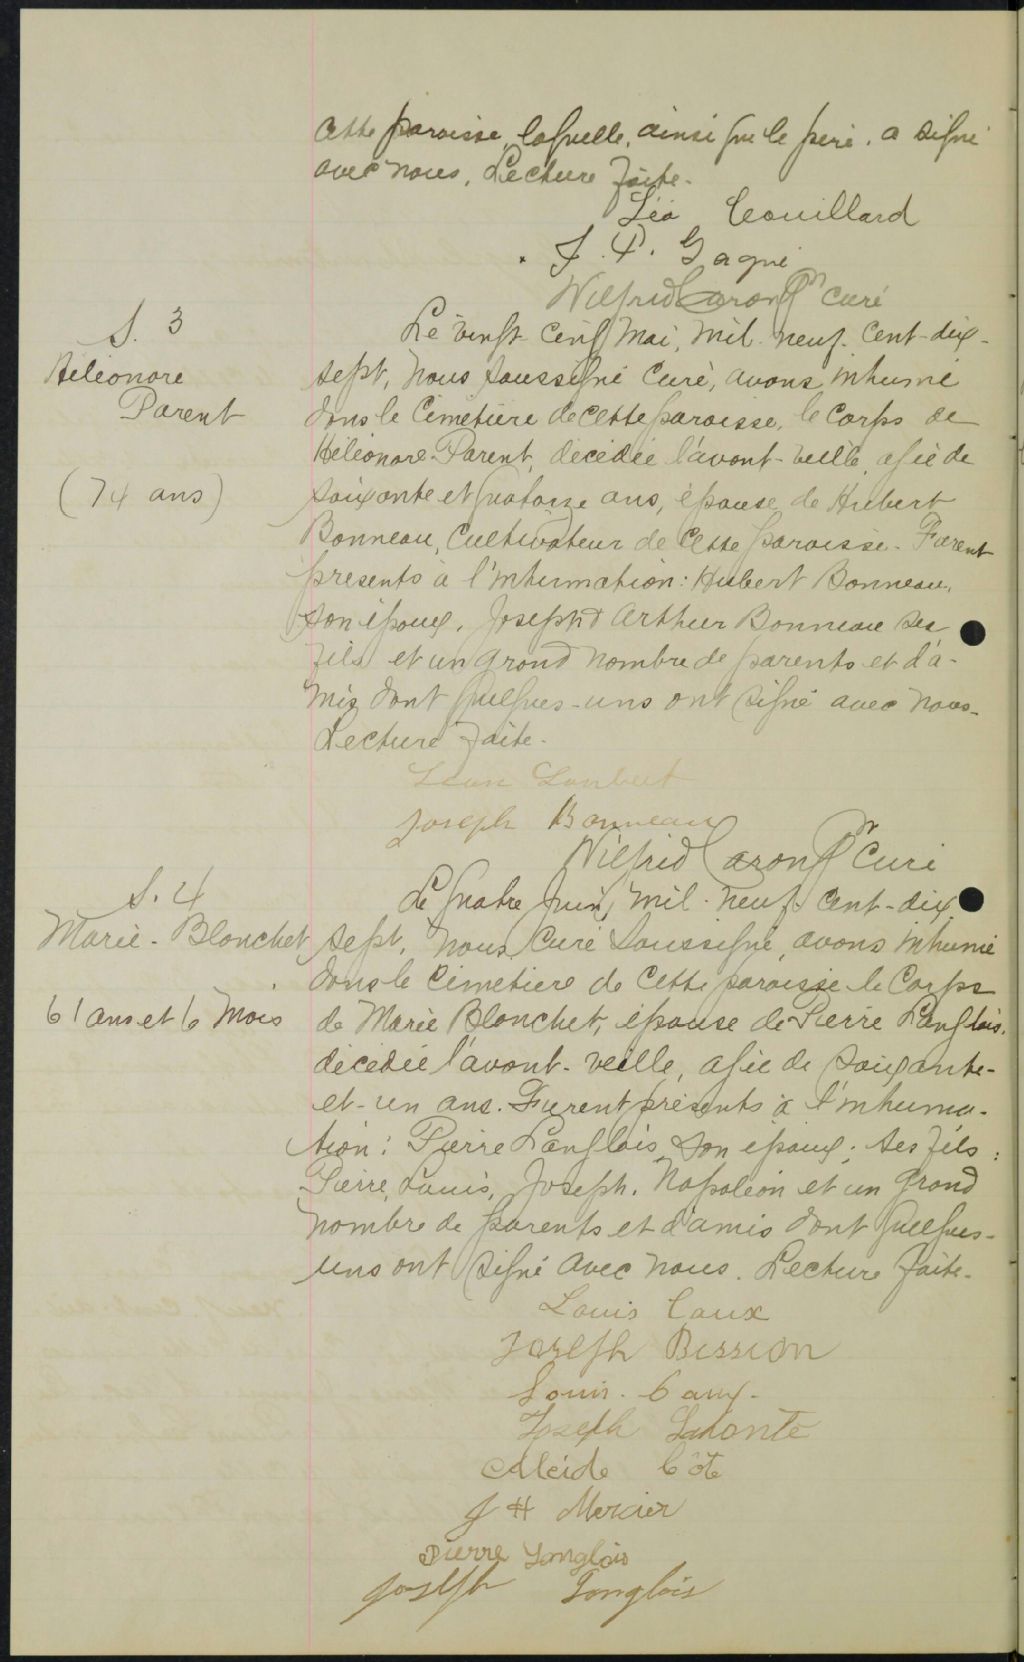 cette paroisse, laquelle, ainsi que le père, a signé
avec nous. Lecture faite.
Léo Couillard
J. P. Gagné
Wilfrid Caron Ptre Curé
S. 3
Héléonore
Parent
(74 ans)
Le vingt cinq Mai, mil neuf cent-dix-
sept, nous soussigné Curé, avons inhumé
dans le Cimetière de cette paroisse, le corps de
Héléonore Parent, décédée l'avant-veille, agée de
soixante et quatorze ans, épouse de Hubert
Bonneau, Cultivateur de cette paroisse. Furent
présents à l'inhumation: Hubert Bonneau,
son époux, Joseph & Arthur Bonneau ses
fils et un grand nombre de parents et d'a-
mis dont quelques-uns ont signé avec nous.
Lecture faite.
Léon Lambert
Joseph Bonneau
Wilfrid Caron Ptre Curé
S. 4
Marie-Blanchet
61 ans et 6 Mois
Le quatre Juin, mil neuf cent-dix
sept, nous Curé soussigné, avons inhumé
dans le Cimetière de cette paroisse le Corps
de Marie Blanchet, épouse de Pierre Langlois,
décédée l'avant-veille, agée de soixante-
et-un ans. Furent présents à l'inhuma-
tion: Pierre Langlois, son époux; ses fils:
Pierre, Louis, Joseph, Napoléon et un grand
nombre de parents et d'amis dont quelques-
uns ont signé avec nous. Lecture faite.
Louis Caux
Joseph Bission
Louis Caux
Joseph Lamonte
Alcide Côté
J H Mercier
Pierre Langlois
Joseph Langlois